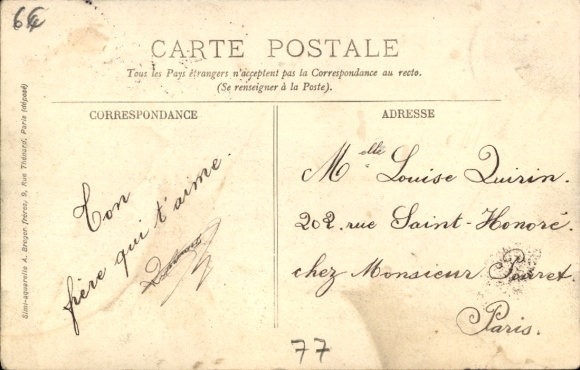 CARTE POSTALE
Tous les Pays étrangers n'acceptent pas la Correspondance au recto.
(Se renseigner à la Poste).
CORRESPONDANCE
Ton
frère qui t'aime.
ADRESSE
Melle Louise Quirin.
202. rue Saint-Honoré.
chez Monsieur Poirret.
Paris.
77
Simi-aquarelle A. Breger frères, 9, Rue Thénard, Paris (déposé)